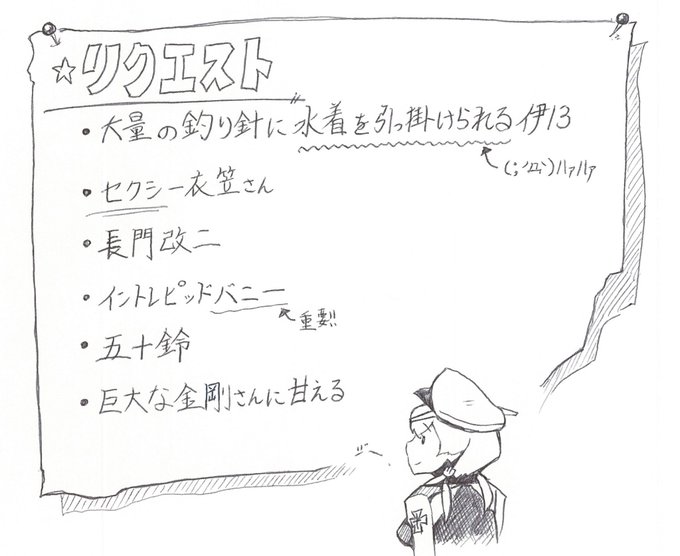 ☆リクエスト
・大量の釣り針に水着を引っ掛けられる伊13
(;´Д`)ハァハァ
・セクシー衣笠さん
・長門改二
・イントレピッドバニー
重要!!
・五十鈴
・巨大な金剛さんに甘える
ジー